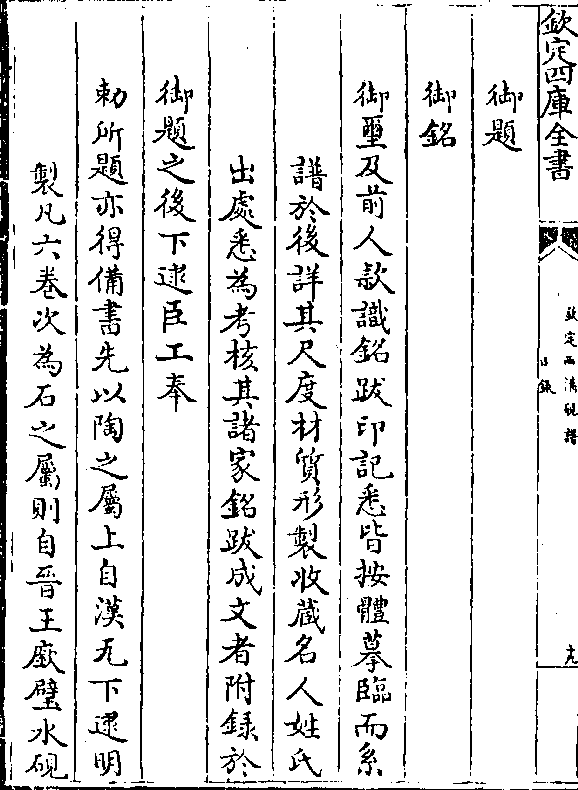 欽定四庫全書
欽定西清硯譜
目錄
十九
御題
御銘
御璽及前人款識銘跋印記悉皆按體摹臨而系
譜於後詳其尺度材質形製收藏名人姓氏
出處悉為考核其諸家銘跋成文者附錄於
御題之後下逮臣工奉
勅所題亦得備書先以陶之屬上自漢瓦下逮明
製凡六卷次為石之屬則自晉王廞璧水硯